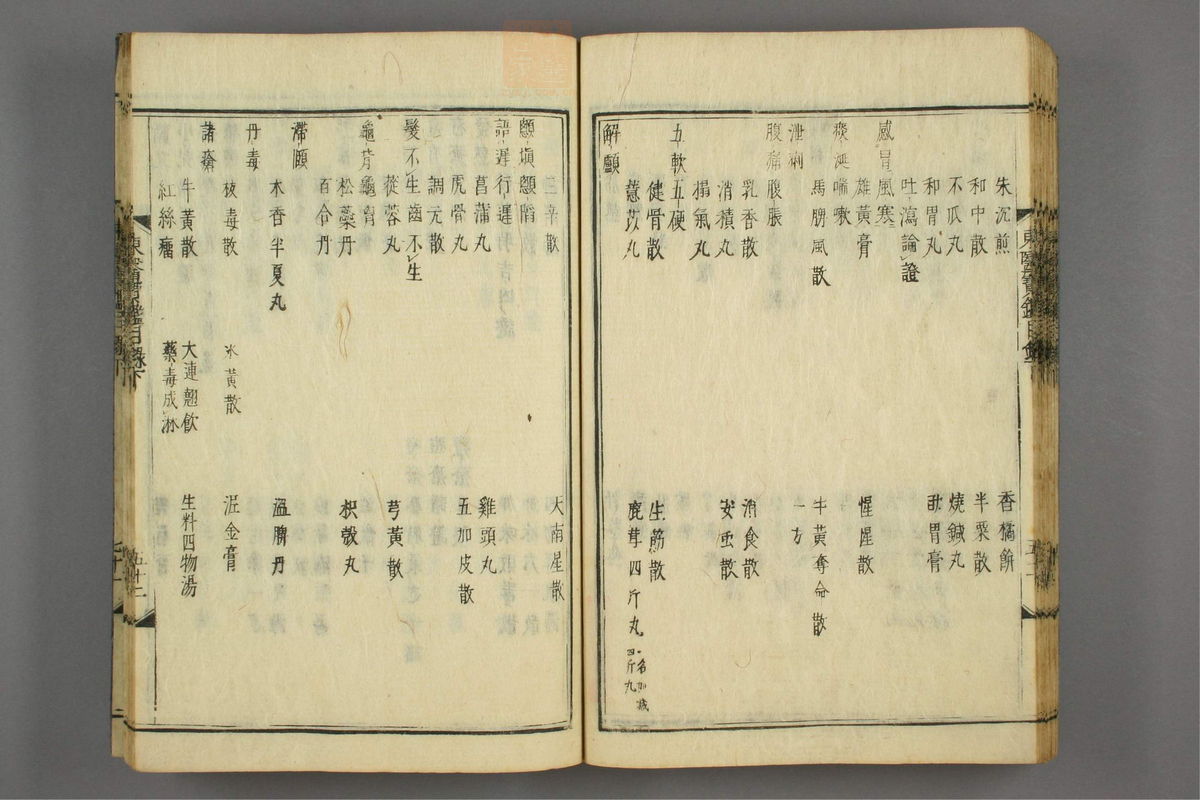 朱沉煎 香橘餅
和中散 半粟散
不瓜丸 燒鍼丸
和胃丸 助胃膏
吐瀉論證
感冒風寒 惺惺散
雄黃膏
痰涎喘嗽 牛黃奪命散
馬脾風散 一方
泄痢
腹痛腹脹
乳香散 消食散
消積丸 安虫散
搨氣丸
五軟五硬
健骨散 生筋散
薏苡丸 鹿茸四斤丸 一名加减四斤丸
解顱
三辛散 天南星散
顖塡顖陷
語遲行遲
菖蒲丸 雞頭丸
虎骨丸 五加皮散
調元散
髮不生齒不生
蓯蓉丸 芎黃散
龜背龜胷
松蘂丹 枳殼丸
百合丹
滯頤
木香半夏丸 溫脾丹
丹毒
拔毒散 氷黃散 泥金膏
諸瘡
牛黃散 大連翹飮 生料四物湯
紅絲瘤 藥毒成淋
東醫寶鑑目錄下 五十二